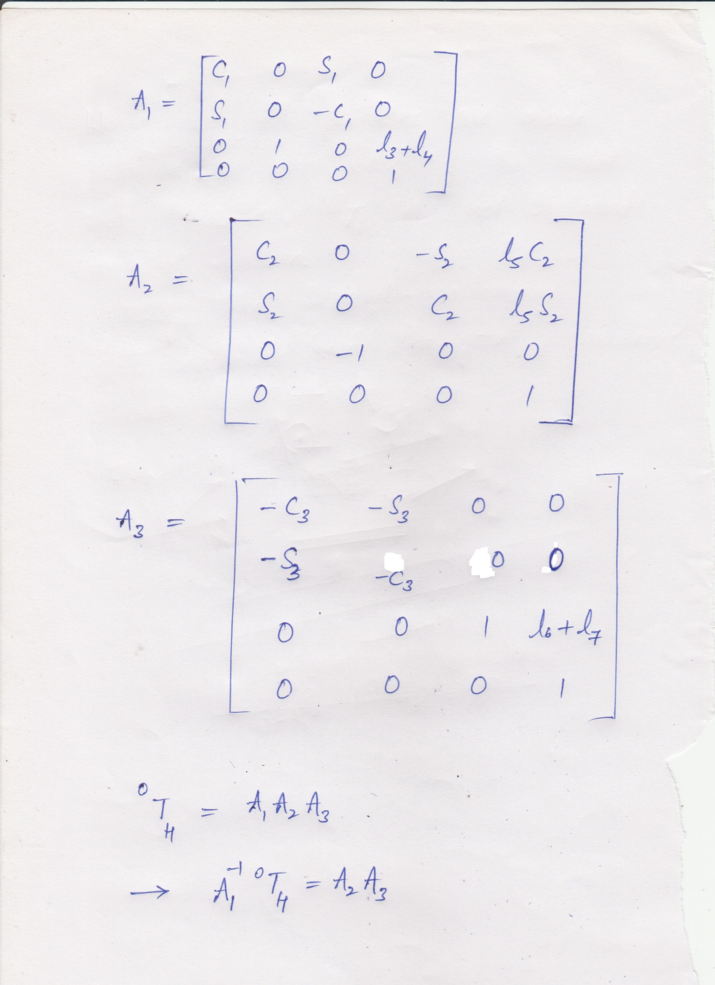 C₁ 0 S₁ 0
A₁ = S₁ 0 -C₁ 0
0 1 0 l₃+l₄
0 0 0 1
C₂ 0 -S₂ l₅C₂
A₂ = S₂ 0 C₂ l₅S₂
0 -1 0 0
0 0 0 1
-C₃ -S₃ 0 0
A₃ = -S₃ -C₃ 0 0
0 0 1 l₆+l₇
0 0 0 1
⁰T_H = A₁A₂A₃
→ A₁⁻¹ ⁰T_H = A₂A₃